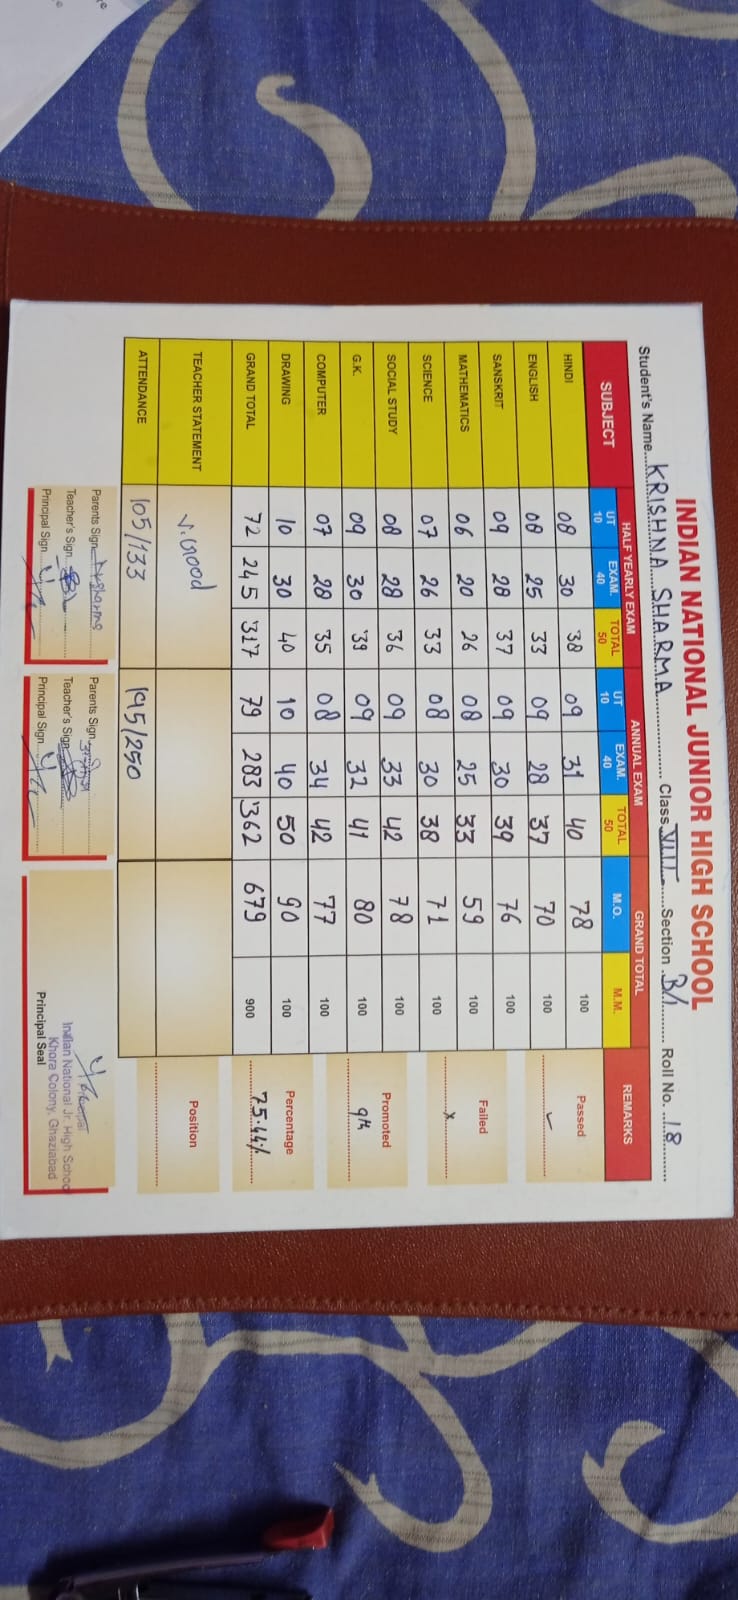 INDIAN NATIONAL JUNIOR HIGH SCHOOL
Student's Name KRISHNA SHARMA Class VIII Section B/1 Roll No. 18
SUBJECT HALF YEARLY EXAM ANNUAL EXAM GRAND TOTAL REMARKS
UT 10 EXAM. 40 TOTAL 50 UT 10 EXAM. 40 TOTAL 50 M.O. M.M.
HINDI 08 30 38 09 31 40 78 100
ENGLISH 08 25 33 09 28 37 70 100
SANSKRIT 09 28 37 09 30 39 76 100
MATHEMATICS 06 20 26 08 25 33 59 100
SCIENCE 07 26 33 08 30 38 71 100
SOCIAL STUDY 08 28 36 09 33 42 78 100
G.K. 09 30 39 09 32 41 80 100
COMPUTER 07 28 35 08 34 42 77 100
DRAWING 10 30 40 10 40 50 90 100
GRAND TOTAL 72 245 317 79 283 362 679 900
TEACHER STATEMENT V. Good
ATTENDANCE 105/133 195/250
Passed ✓
Failed x
Promoted 9th
Percentage 75.44%
Position
Parents Sign
Teacher's Sign.
Principal Sign.
Parents Sign.
Teacher's Sign.
Principal Sign.
Principal
Indian National Jr. High School
Khora Colony, Ghaziabad
Principal Seal